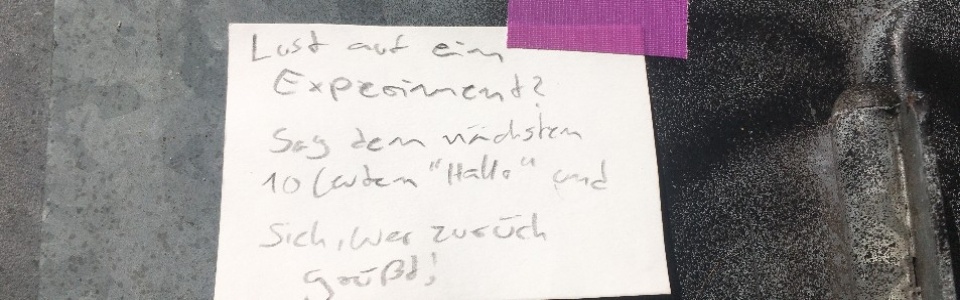 Lust auf ein
Experiment?
Sag den nächsten
10 Leuten "Hallo" und
Sieh, wer zurück
grüßt!